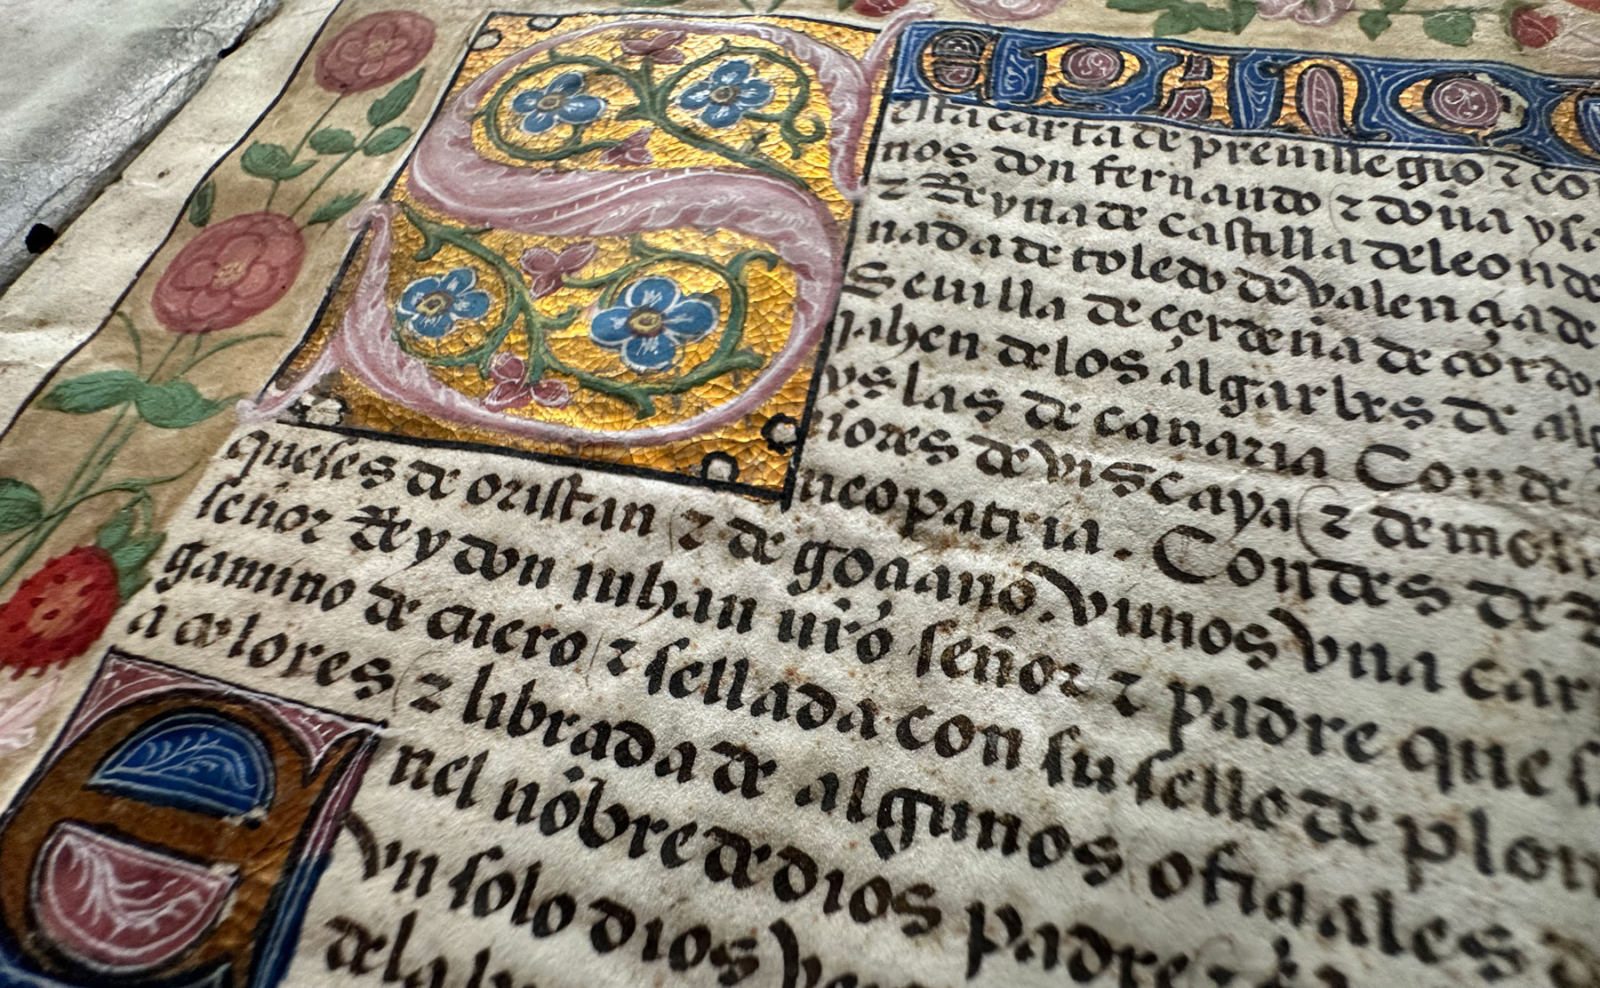 S EPAN
esta carta de preuillegio ⁊ co
nos don fernando ⁊ doña ysa
⁊ Reyna de castilla de leon de
nada de toledo de valençia de
Seuilla de çerdeña de cordo
jahen delos algarbes de alg
ys las de canaria Conde
ñores de viscaya ⁊ de moli
neopatria. Condes de R
queses de oristan ⁊ de goçiano. vimos vna car
señor Rey don iuhan nr̃o señor ⁊ padre que s
gamino de cuero ⁊ sellada con su sello de plom
a colores ⁊ librada de algunos ofiçiales
E nel nõbre de dios padre
vn solo dios